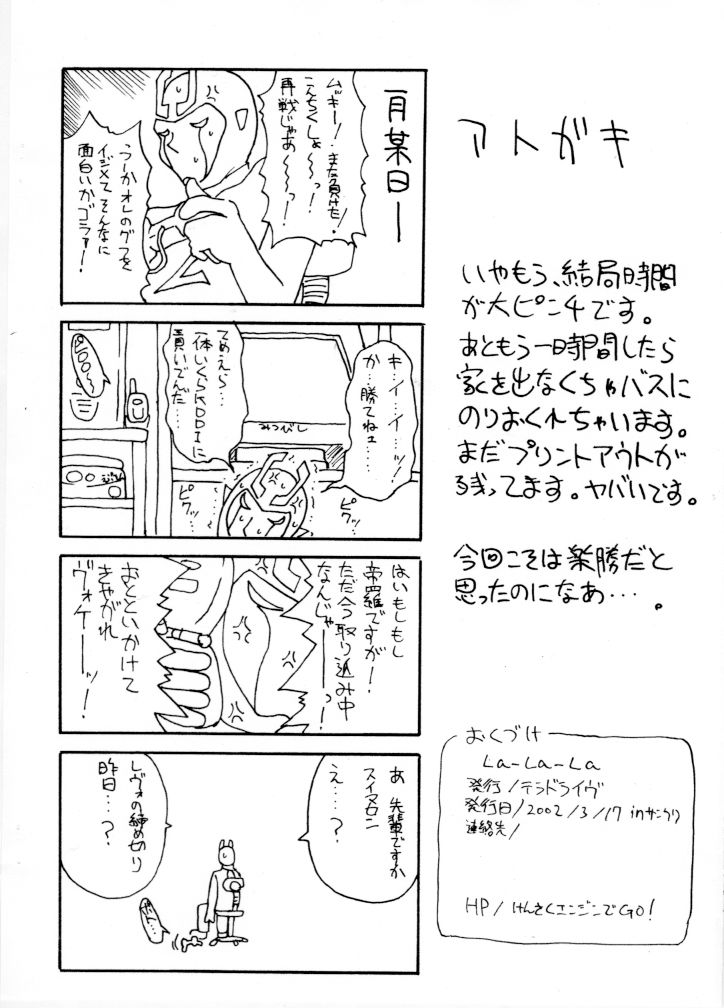 アトガキ
いやもう、結局時間
が大ピンチです。
あともう一時間したら
家を出なくちゃバスに
のりおくれちゃいます。
まだプリントアウトが
残ってます。ヤバいです。
今回こそは楽勝だと
思ったのになあ・・・。
おくづけ
La-La-La
発行/テラドライヴ
発行日/2002/3/17 inサンクリ
連絡先/
HP/けんさくエンジンでGO!
一月某日ー
ムッキー!また負けた!
こんちくしょ〜〜っ!
再戦じゃあ〜〜っ!
うーかオレのグフを
イジメてそんなに
面白いかゴラァー!
キ・イ・イ・ッ!
か…勝てねェ……
みつびし
てめえら…
一体いくらKDDIに
貢いでんだ……
ピクッ…
ピクッ…
はいもしもし
帝羅ですが!
ただ今取り込み中
なんじゃーーっ!
おとといかけて
きやがれ
ヴォケーーッ!
あ 先輩ですか
スイマセン
え…?
レヴォの締め切り
昨日…?